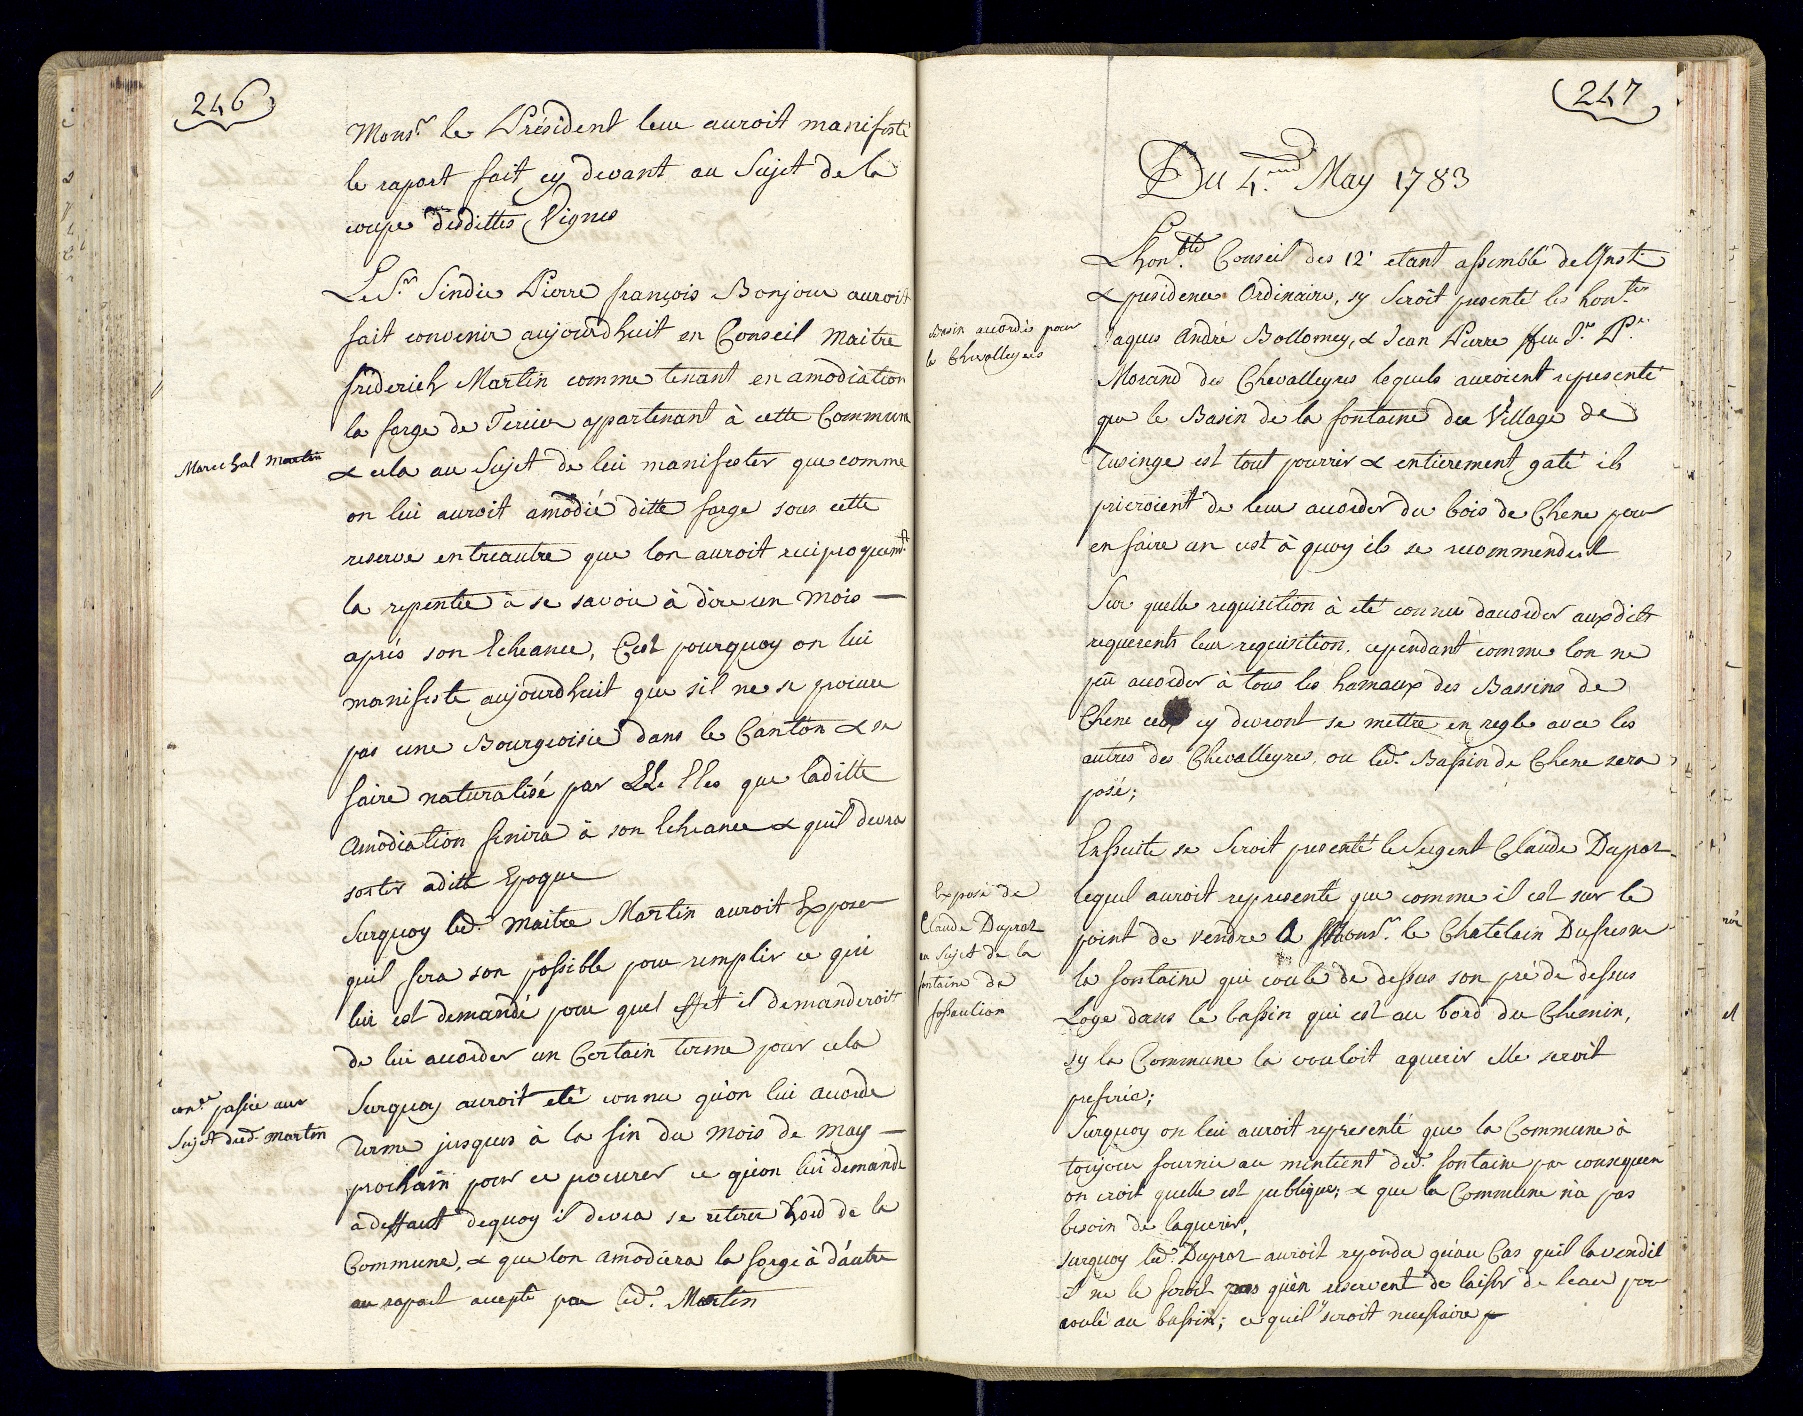 246
Mons.r le Président leur auroit manifesté
le raport fait cy devant au Sujet de la
coupe desdittes Vignes
Le S.r Sindic Pierre françois Bonjour auroit
fait convenir aujourdhuit en Conseil Maitre
friderich Martin comme tenant en amodiation
la forge de Tercier appartenant à cette Commune
Marechal Martin
& cela au Sujet de lui manifester que comme
on lui auroit amodié ditte forge sous cette
reserve entreautre que lon auroit reciproquem.t
la repentie à se savoir à dire un mois —
aprés son Echeance, C'est pourquoy on lui
manifeste aujourdhuit que sil ne se procure
pas une Bourgeoisie dans le Canton & se
faire naturalisé par LLe EEes que laditte
Amodiation finira à son Echeance & quil devra
sortir aditte Epoque
Surquoy led.t Maitre Martin auroit Exposer
quil fera son possible pour remplir ce qui
lui est demandé pour quel effet il demanderoit
de lui accorder un Certain terme pour cela
con.ce passée aux
Sujet dud.t Martin
Surquoy auroit eté connu qu'on lui accorde
Terme jusques à la fin du Mois de may —
prochain pour ce procurer ce qu'on lui demande
à deffaut dequoy il devra se retirer hord de la
Commune, & que lon amodiera la forge à d'autre
au raport accepté par led.t Martin
247
Du 4.me May 1783
Lhon.ble Conseil des 12 etant assemblé de l'Inst.
& presidence Ordinaire, sy seroit presenté les hon.bles
Basin accordés pour
le Chevalleyres
Jaques André Bollomey, & Jean Pierre ffeu J.n P.re
Morand des Chevalleyres lequels auroient representé
que le Basin de la fontaine du Village de
Tusinge est tout pourrir & entierement gaté ils
prieroient de leur accorder du bois de Chene pour
en faire un est à quoy ils se recommendent
Sur quelle requisition à eté connu daccorder auxdits
requerents leur requisition, cependant comme lon ne
peu accorder à tous les hamaux des Bassins de
Chene ceux cy devront se mettre en regle avec les
autres des Chevalleyres, ou led.t Bassin de Chene sera
posé;
Ensuite se Seroit presenté le Sergent Claude Dupraz
Exposé de
Claude Dupraz
au Sujet de la
fontaine de
fossaulion
lequel auroit representé que comme il est sur le
point de vendre à Mons.r le Chatelain Dufresne
la fontaine qui coule de dessus son pré de dessus
Loge dans le bassin qui est au bord du Chemin,
sy la Commune la vouloit aquerir elle seroit
preferée;
Surquoy on lui auroit representé que la Commune à
toujour fournir au mintient dud.t fontaine par consequen
on croit quelle est publique; & que la Commune n'a pas
besoin de laquerir,
surquoy led.t Dupraz auroit repondu qu'au Cas quil la vendit
il ne le feroit pas qu'en reservent de laisser de leau pour
coulé au bassin; ce quil seroit necessaire